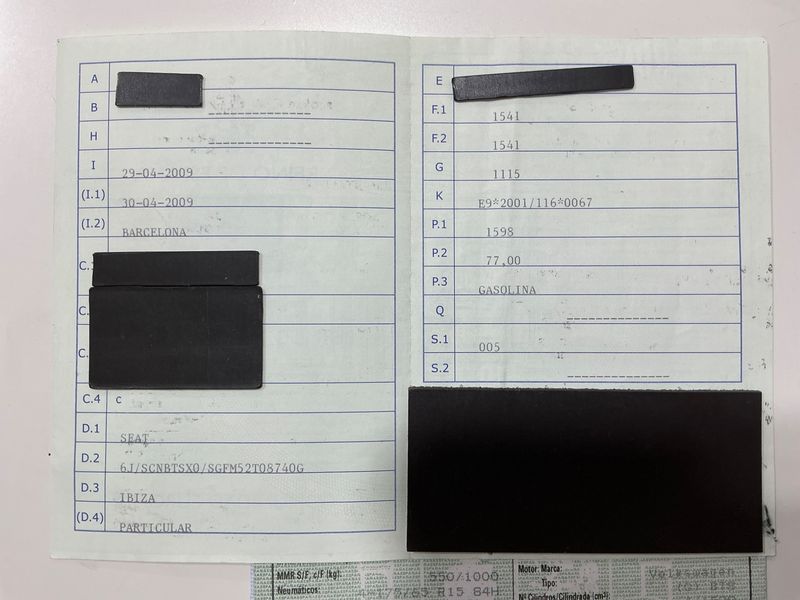 A
B --------------
H --------------
I 29-04-2009
(I.1) 30-04-2009
(I.2) BARCELONA
C.
C.
C.
C.4 c
D.1 SEAT
D.2 6J/SCNBTSX0/SGFM52T08740G
D.3 IBIZA
(D.4) PARTICULAR
E
F.1 1541
F.2 1541
G 1115
K E9*2001/116*0067
P.1 1598
P.2 77,00
P.3 GASOLINA
Q --------------
S.1 005
S.2 --------------
MMR S/F, c/F (kg): 550/1000
Neumáticos: 175/65 R15 84H
Motor: Marca: Volkswagen
Tipo:
Nº Cilindros/Cilindrada (cm³):